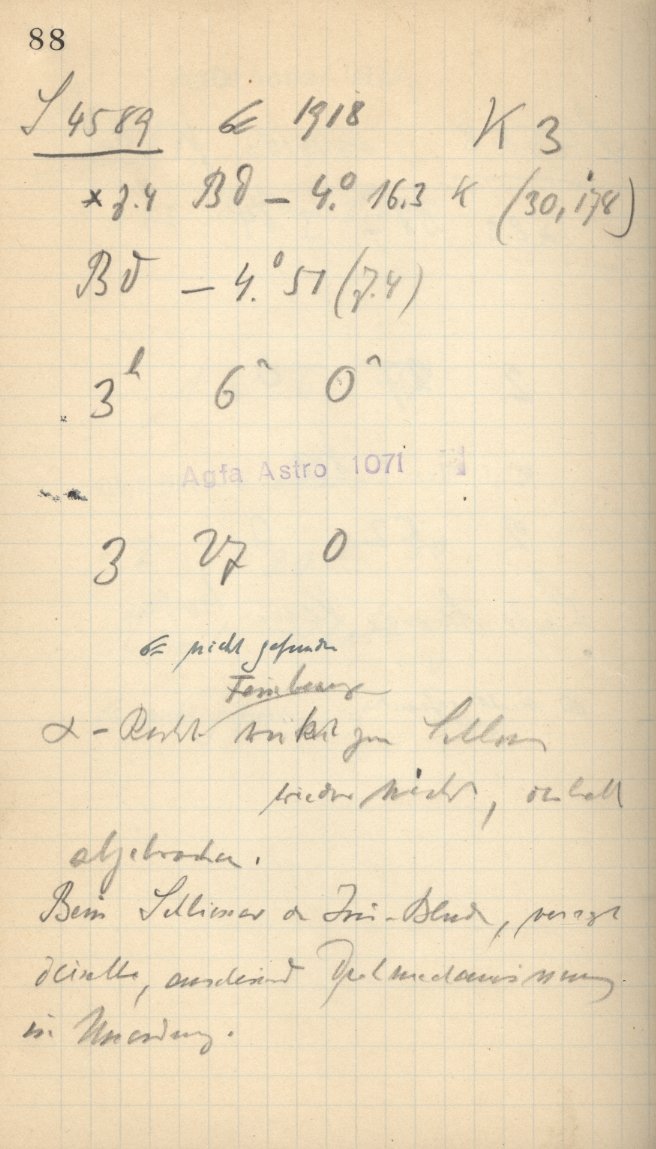 88
S 4589 1918 K 3
* 7.4 BD – 4.° 16.3 K (30,178)
BD – 4.° 51 (7.4)
3h 6m 0m
Agfa Astro 1071
3 27 0
nicht gefunden
Feinbeweg
α – wirkt zum
wieder nicht, deshalb
abgebrochen.
Beim Schliessen der Iris-Blende, versagt
dieselbe, anscheinend
in Unordnung.